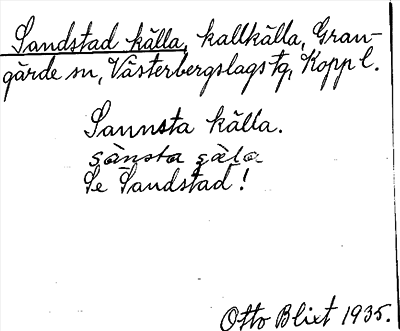 Sandstad källa, kallkälla, Gran-
gärde sn, Västerbergslags tg, Kopp l.
Sannsta källa.
sànsta çäla
Se Sandstad!
Otto Blixt 1935.